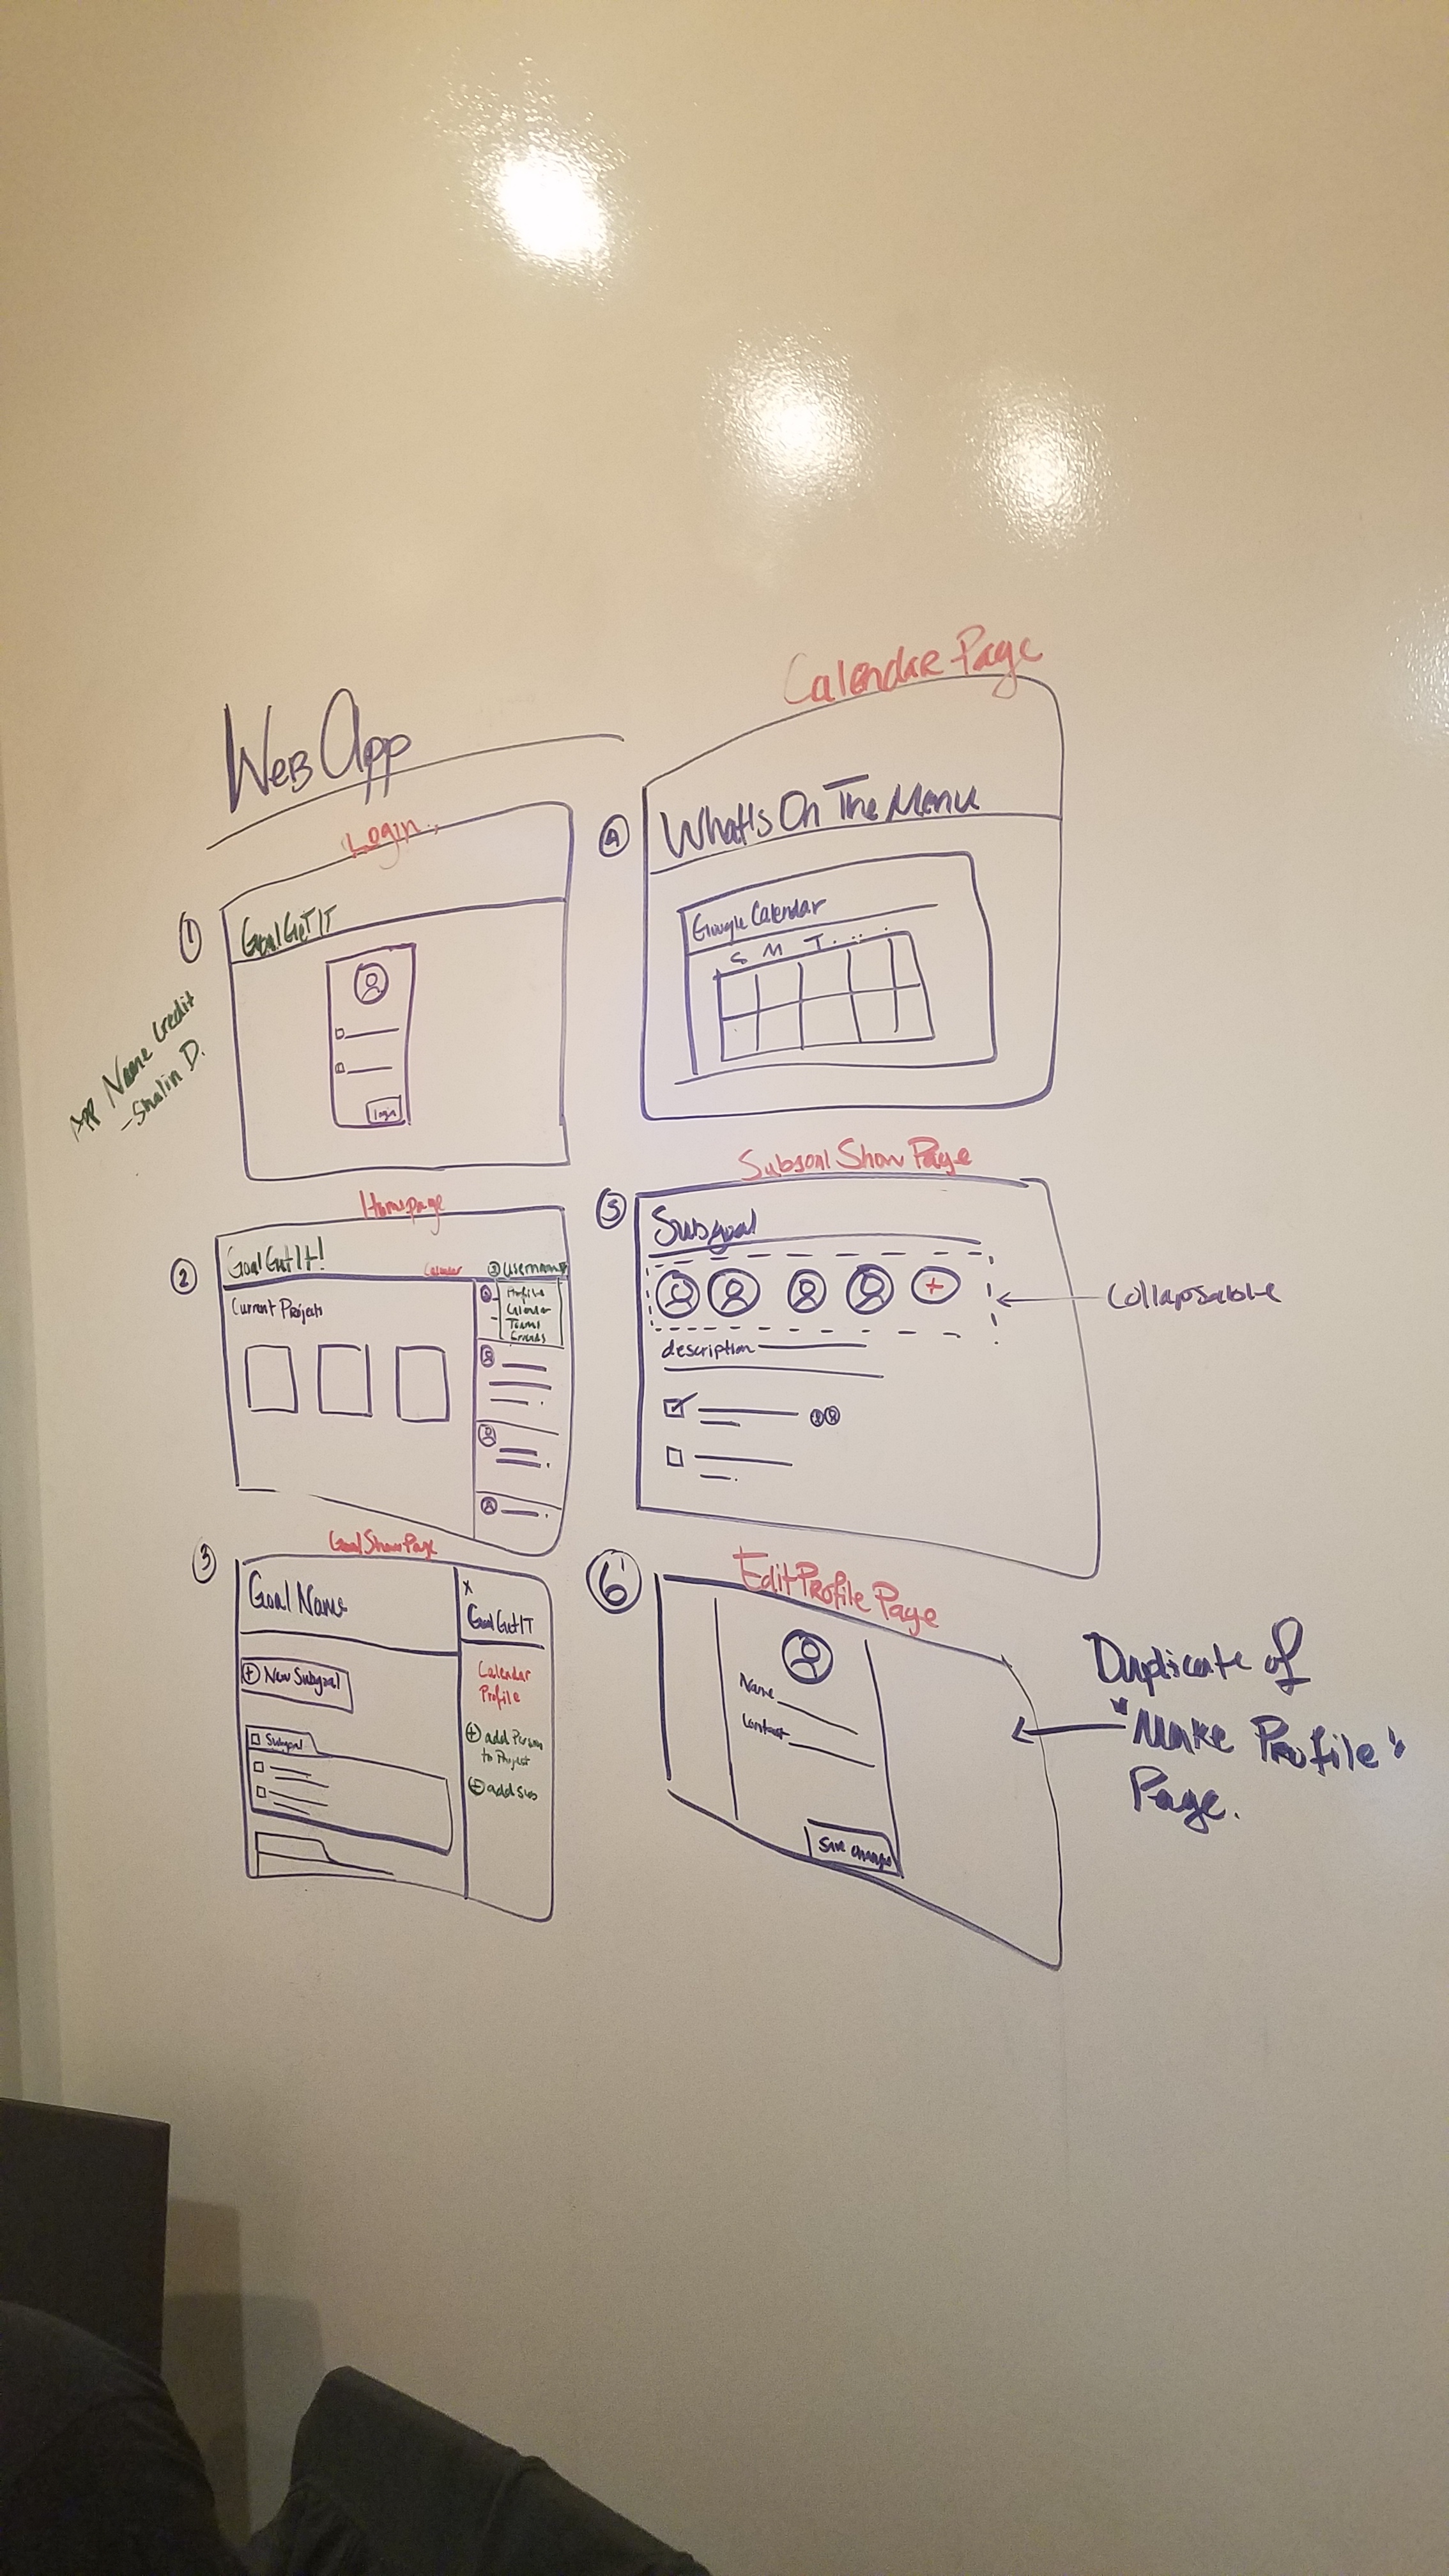 Web App
Login
①
GoalGetIT
login
App Name Credit
- Shalin D.
Homepage
②
Goal GetIt!
Calendar
Username
Current Projects
Profile
Calendar
Teams
Goal Show Page
3
Goal Name
x
Goal GetIT
+ New Subgoal
Calendar
Profile
Subgoal
+ add Person
to Project
+ add Sub
Calendar Page
④
What Is On The Menu
Google Calendar
S M T . . . .
Subgoal Show Page
⑤
Subgoal
+
Collapsable
description
⑥
Edit Profile Page
Name
Contact
Save changes
Duplicate of
"Make Profile"
Page.